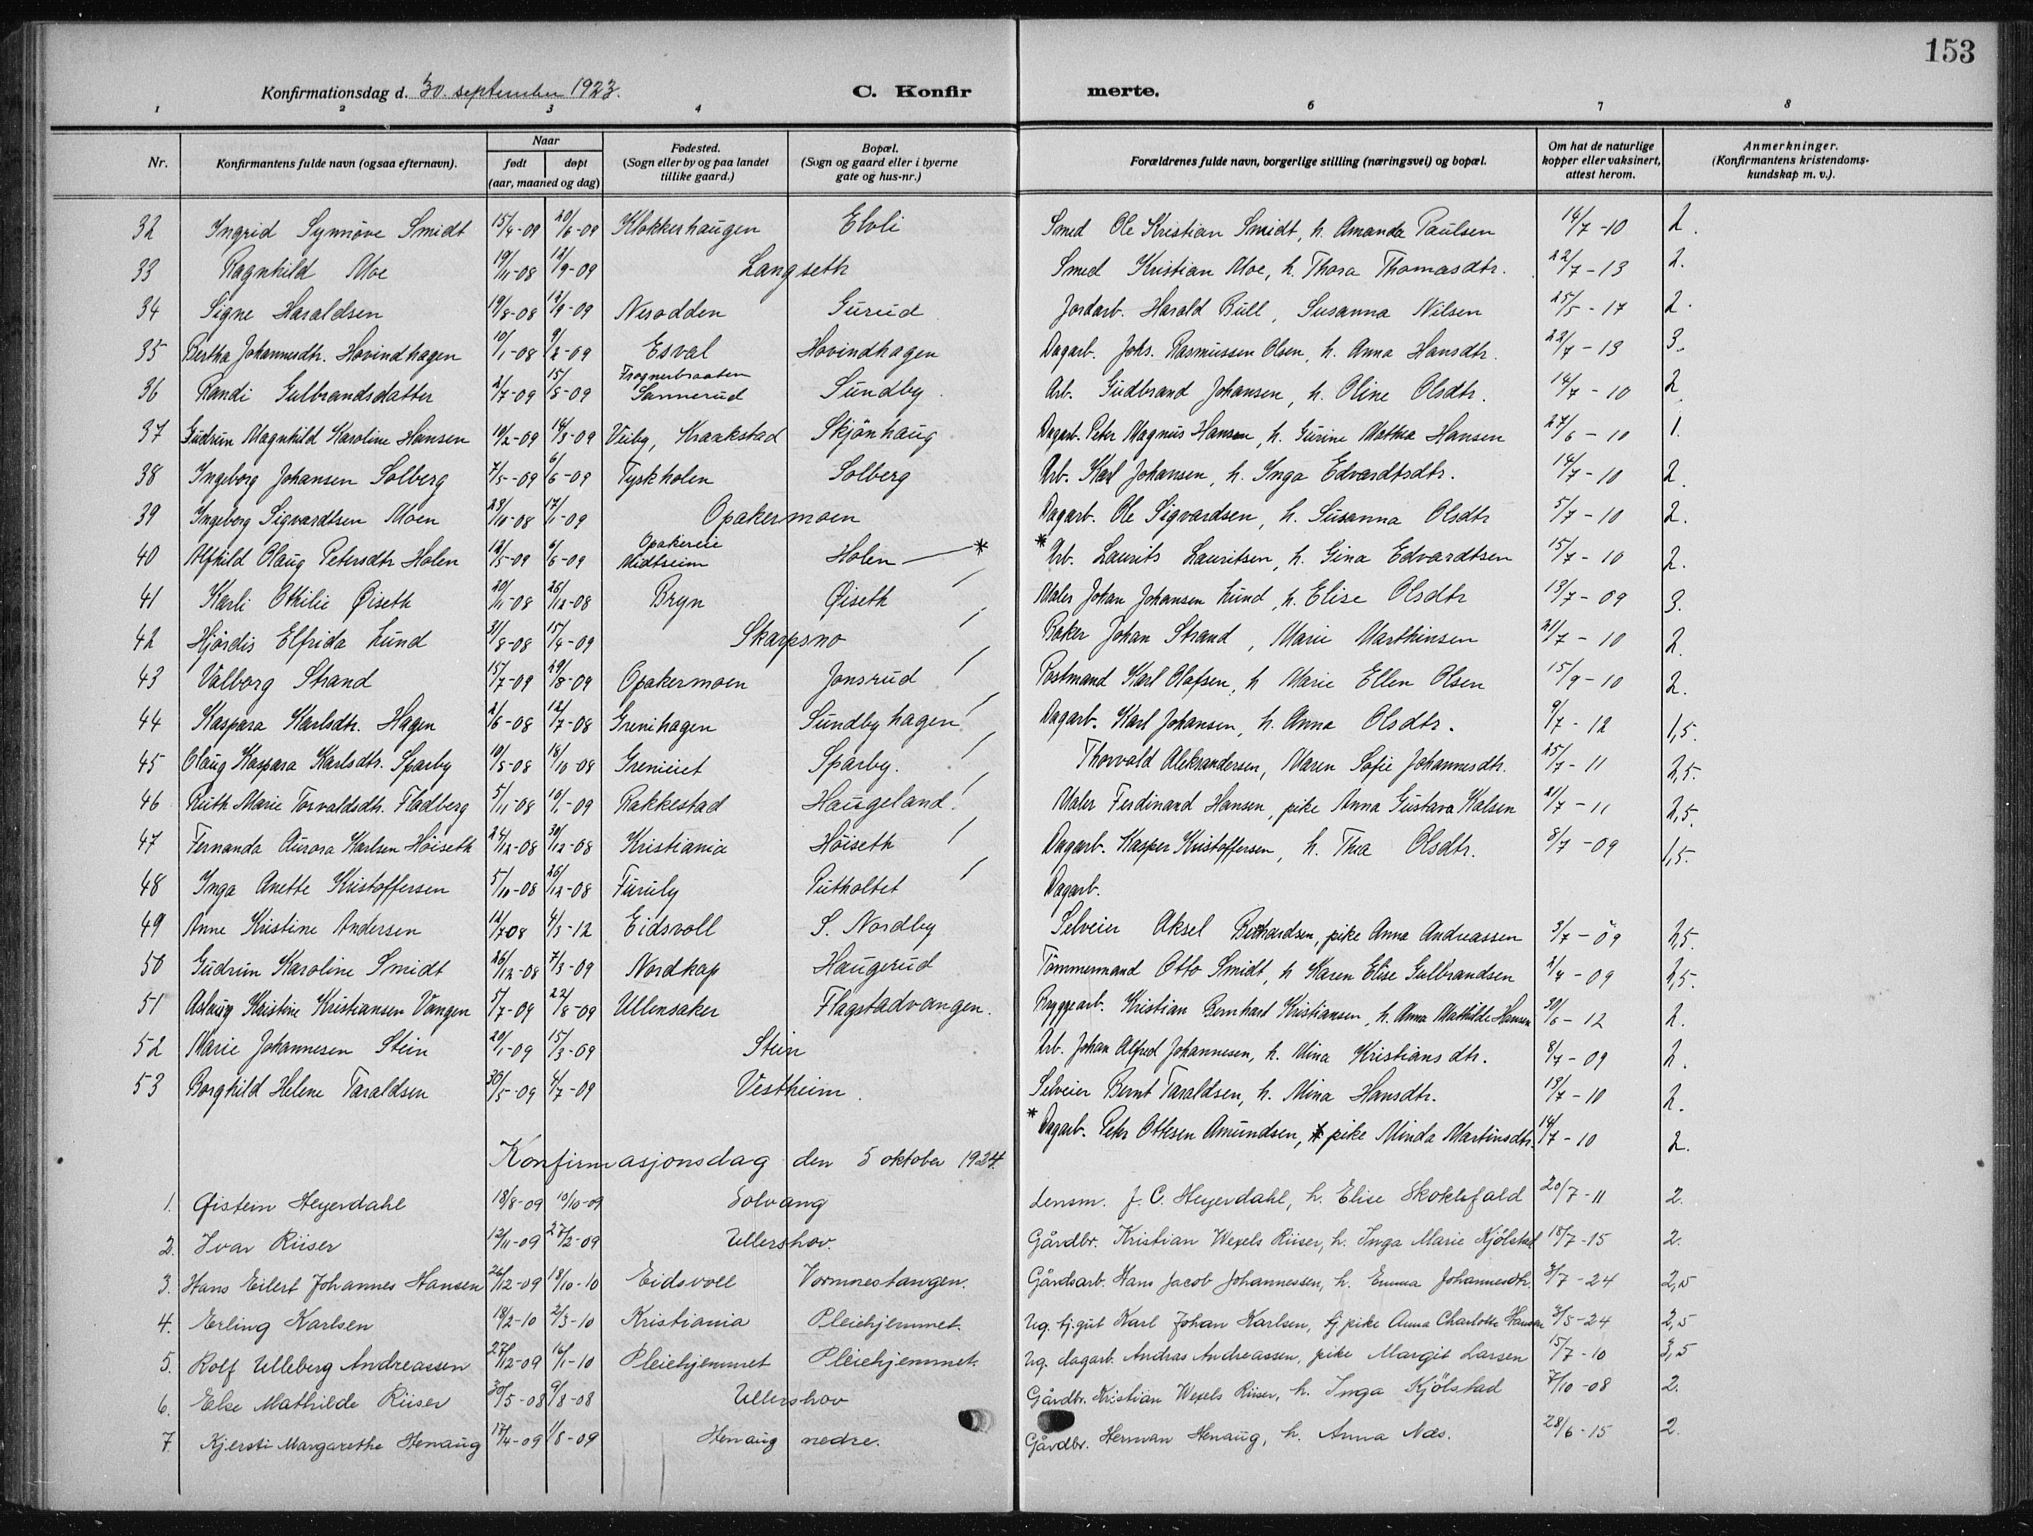 153
Konfirmationsdag d. 30. september 1923.
C. Konfirmerte.
1 2 3 4 6 7 8
Nr.
Konfirmantens fulde navn (ogsaa efternavn).
Naar
født
døpt
(aar, maaned og dag)
Fødested.
(Sogn eller by og paa landet
tillike gaard.)
Bopæl.
(Sogn og gaard eller i byerne
gate og hus-nr.)
Forældrenes fulde navn, borgerlige stilling (næringsvei) og bopæl.
Om hat de naturlige
kopper eller vaksinert,
attest herom.
Anmerkninger.
(Konfirmantens kristendoms-
kundskap m. v.).
32 Ingrid Synnøve Smidt 15/4-09 20/6-09 Klokkerhaugen Elvli Smed Ole Kristian Smidt, h. Amanda Paulsen 14/7-10 2.
33 Ragnhild Moe 19/11-08 12/9-09 Langseth Smed Kristian Moe, h. Thora Thomasdtr. 22/7-13 2.
34 Signe Haraldsen 19/8-08 12/9-09 Nesodden Gurud Jordarb. Harald Bull, Susanna Nilsen 25/5-17 2.
35 Bertha Johannesdtr. Hovindhagen 10/1-08 9/2-09 Esval Hovindhagen Dagarb. Johs. Rasmussen Olsen, h. Anna Hansdtr. 22/7-13 3.
36 Randi Gulbrandsdatter 2/7-09 15/8-09 Frognerbraaten Sannerud Sundby. Arb. Gudbrand Johansen, h. Oline Olsdtr. 14/7-10 2.
37 Gudrun Magnhild Karoline Hansen 10/2-09 14/3-09 Veiby, Kraakstad Skjønhaug Dagarb. Peter Magnus Hansen, h. Gurine Mathea Hansen 27/6-10 1.
38 Ingeborg Johansen Solberg 7/5-09 6/6-09 Tyskholen Solberg Arb. Karl Johansen, h. Inga Edvardtsdtr. 14/7-10 2.
39 Ingeborg Sigvardtsen Moen 23/10-08 17/1-09 Opakermoen Dagarb. Ole Sigvardsen, h. Susanna Olsdtr 5/7-10 2.
40 Alfhild Olaug Petersdtr Holen 12/5-09 6/6-09 Opakereie Midtseim Holen * * Arb. Laurits Lauritsen, h. Gina Edvardtsen 15/7-10 2.
41 Karli Othilie Øiseth 20/11-08 26/12-08 Bryn Øiseth Maler Johan Johansen Lund, h. Elise Olsdtr 13/7-09 3.
42 Hjørdis Elfrida Lund 31/8-08 15/4-09 Skarpsno Baker Johan Strand, Marie Marthinsen 21/7-10 2.
43 Valborg Strand 15/7-09 29/8-09 Opakermoen Jonsrud Postmand Karl Olafsen, h Marie Ellen Olsen 15/9-10 2.
44 Kaspara Karlsdtr. Hagen 2/6-08 12/7-08 Grenihagen Sundbyhagen Dagarb. Karl Johansen, h. Anna Olsdtr. 9/7-12 1,5.
45 Olaug Kaspara Karlsdtr. Sparby 10/8-08 18/10-08 Grenieiet Sparby. Thorvald Aleksandersen, Maren Sofie Johannesdtr. 25/7-11 2,5.
46 Ruth Marie Torvaldsdtr. Fladberg 5/11-08 10/1-09 Rakkestad Haugeland. Maler Ferdinand Hansen, pike Anna Gustava Kalsen 21/7-11 2,5.
47 Fernanda Aurora Karlsen Høiseth 24/12-08 30/12-08 Kristiania Høiseth Dagarb. Kasper Kristoffersen, h. Thea Olsdtr. 8/7-09 1,5.
48 Inga Anette Kristoffersen 5/10-08 26/12-08 Furuly Putholtet Dagarb.
49 Anne Kristine Andersen 12/7 08 4/3-12 Eidsvoll S. Nordby Selveier Aksel Bernhardsen, pike Anna Andreassen 3/7-09 2,5.
50 Gudrun Karoline Smidt 26/12-08 7/3-09 Nordkap Haugerud Tømmermand Otto Smidt, h Karen Elise Gulbrandsen 2/4-09 2,5.
51 Aslaug Kristine Kristiansen Vangen 5/7-09 22/8-09 Ullensaker Flagstadvangen. Byggearb. Kristian Bernhart Kristiansen, h. Anna Mathilde Hansen 30/6-12 2.
52 Marie Johannesen Stein 20/1-09 15/3-09 Stein Arb. Johan Alfred Johannesen, h. Mina Kristiansdtr. 8/7-09 2.
53 Borghild Helene Taraldsen 30/5-09 4/7-09 Vestheim. Selveier Bernt Taraldsen, h. Mina Hansdtr. 13/7-10 2.
* Dagarb. Peter Ottesen Amundsen, pike Minda Martinsdtr. 14/7-10 2.
Konfirmasjonsdag den 5 oktober 1924.
1. Øistein Heyerdahl 18/8-09 10/10-09 Solvang Lensm. J. C. Heyerdahl, h. Elise Skoklefald 20/7-11 2.
2. Ivar Riiser 12/11-09 27/2-09 Ullershov. Gårdbr. Kristian Wexels Riiser, h. Inga Marie Kjølstad 18/7-15 2.
3. Hans Eilert Johannes Hansen 26/12-09 18/10-10 Eidsvoll Vormnestangen. Gårdsarb. Hans Jacob Johannessen, h. Emma Johannesdtr. 3/7-24 2,5
4. Erling Karlsen 18/2-10 2/3-10 Kristiania Pleiehjemmet. Ug. tj.gut Karl Johan Karlsen, tj.pike Anna Charlotte Hansen 3/5-24 2,5
5. Rolf Ulleberg Andreassen 27/12-09 16/1-10 Pleiehjemmet Pleiehjemmet. Ug. dagarb. Andras Andreassen, pike Margit Larsen 15/7-10 3,5
6. Else Mathilde Riiser 30/5-08 9/8-08 Ullershov Gårdbr. Kristian Wexels Riiser, h. Inga Kjølstad 7/10-08 2.
7 Kjersti Margarethe Henaug 17/4-09 1/8-09 Henaug nedre. Gårdbr. Herman Henaug, h. Anna Næs. 28/6-15 2.